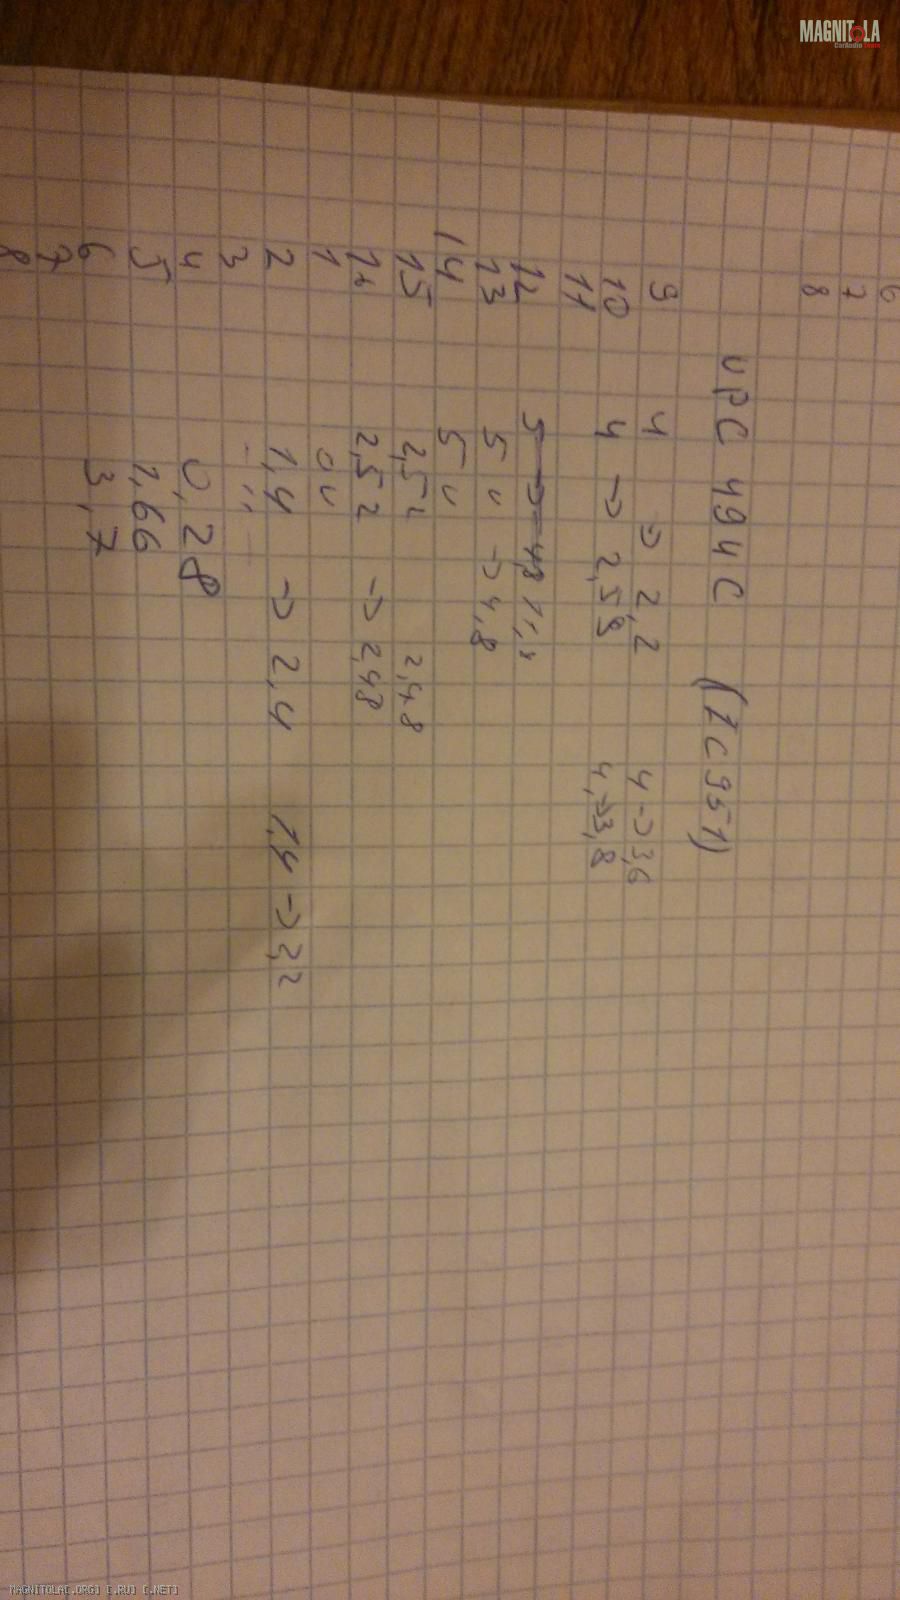 MAGNITOLA
CarAudio Team
6
7
8
UPC 494C (IC951)
9 4 → 2,2 4 → 3,6
10 4 → 2,58 4 → 3,8
11
12 5 → 4,8 11,4
13 5 v → 4,8
14 5 v
15 2,5 2,48
16 2,52 → 2,48
1 0 v
2 1,4 → 2,4 1,4 → 2,2
3
4 0,28
5 1,66
6 3,7
7
8
MAGNITOLA[.ORG] [.RU] [.NET]